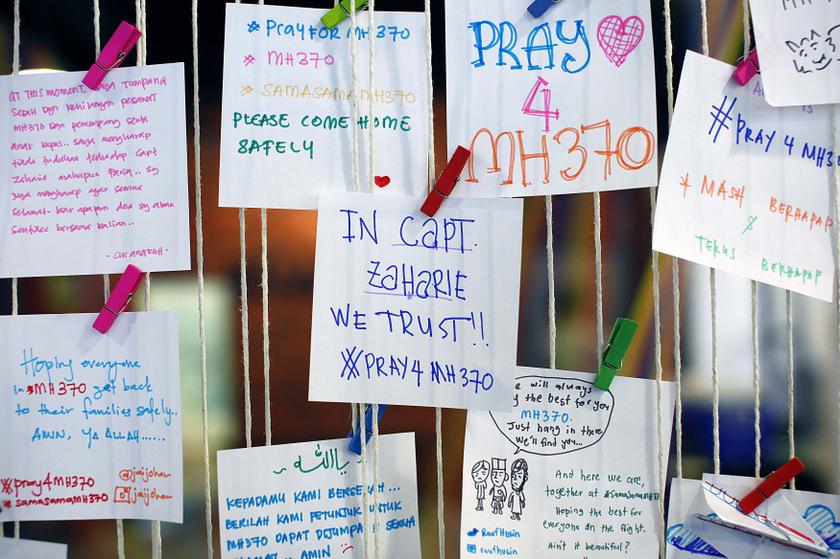 AT THIS MOMENT, saya TUMPANG
SEDIH Dgn Kehilangan pesawat
MH370 Dgn penumpang serta
anak kapal.. saya mengharap
tiada tuduhan terhadap Capt
Zaharie mahupun Fariq.. sy
juga mengharap agar semua
selamat.. biar apapun doa sy akan
sentiasa bersama kalian..
#PRAY FOR MH370
* MH370
* SAMASAMAMH370
PLEASE COME HOME
SAFELY
PRAY
4
MH370
#PRAY 4 MH3
* MASIH BERHARAP
&
TERUS BERHARAP
IN CAPT.
ZAHARIE
WE TRUST!!
#PRAY4 MH370
Hoping everyone
in #MH370 get back
to their families safely..
AMIN, YA ALLAH......
#pray4MH370
#samasamaMH370
@jaijohan
jaijohan
يا الله
KEPADAMU KAMI BERSERAH...
BERILAH KAMI PETUNJUK UNTUK
MH370 DAPAT DIJUMPAI SEMUA
AMIN
we will always
the best for you
MH370.
Just hang in there,
we'll find you...
And here we are,
together at #SamaSamaMH370
Hoping the best for
everyone on the flight.
Ain't it beautiful?
RaufHusin
raufhusin